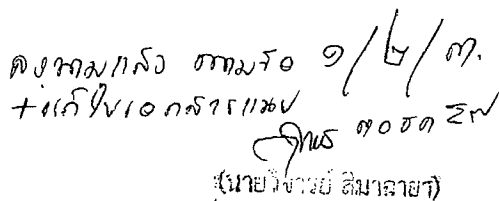 ลงนามแล้ว ตามข้อ ๑/๒/๓.
+แก้ไขเอกสารแนบ
๓๐ธค
(นายวิจารย์ สิมาฉายา)